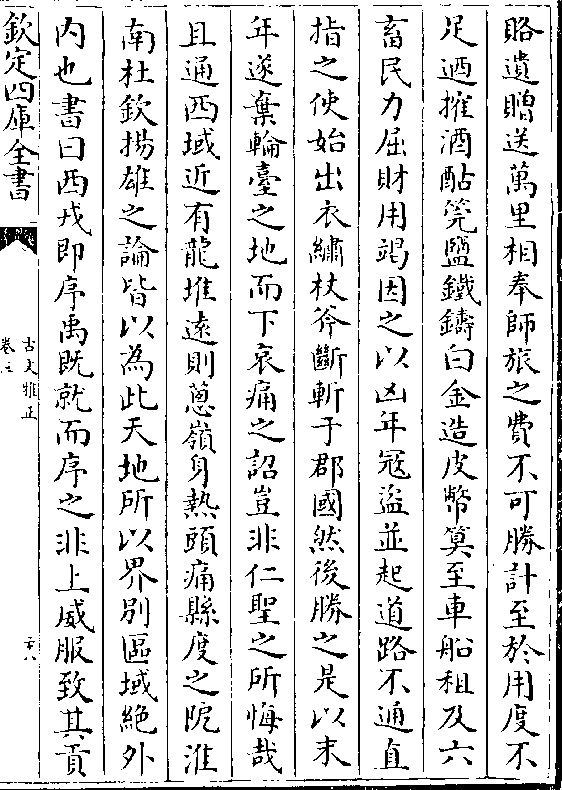 賂遺贈送萬里相奉師旅之費不可勝計至於用度不
足迺搉酒酤筦鹽鐵鑄白金造皮幣筭至車船租及六
畜民力屈財用竭因之以凶年冦盗並起道路不通直
指之使始出衣繡杖斧斷斬于郡國然後勝之是以末
年遂棄輪臺之地而下哀痛之詔豈非仁聖之所悔哉
且通西域近有龍堆逺則葱嶺身熱頭痛縣度之阸淮
南杜欽揚雄之論皆以為此天地所以界别區域絶外
内也書曰西戎即序禹既就而序之非上威服致其貢
欽定四庫全書
古文雅正
卷